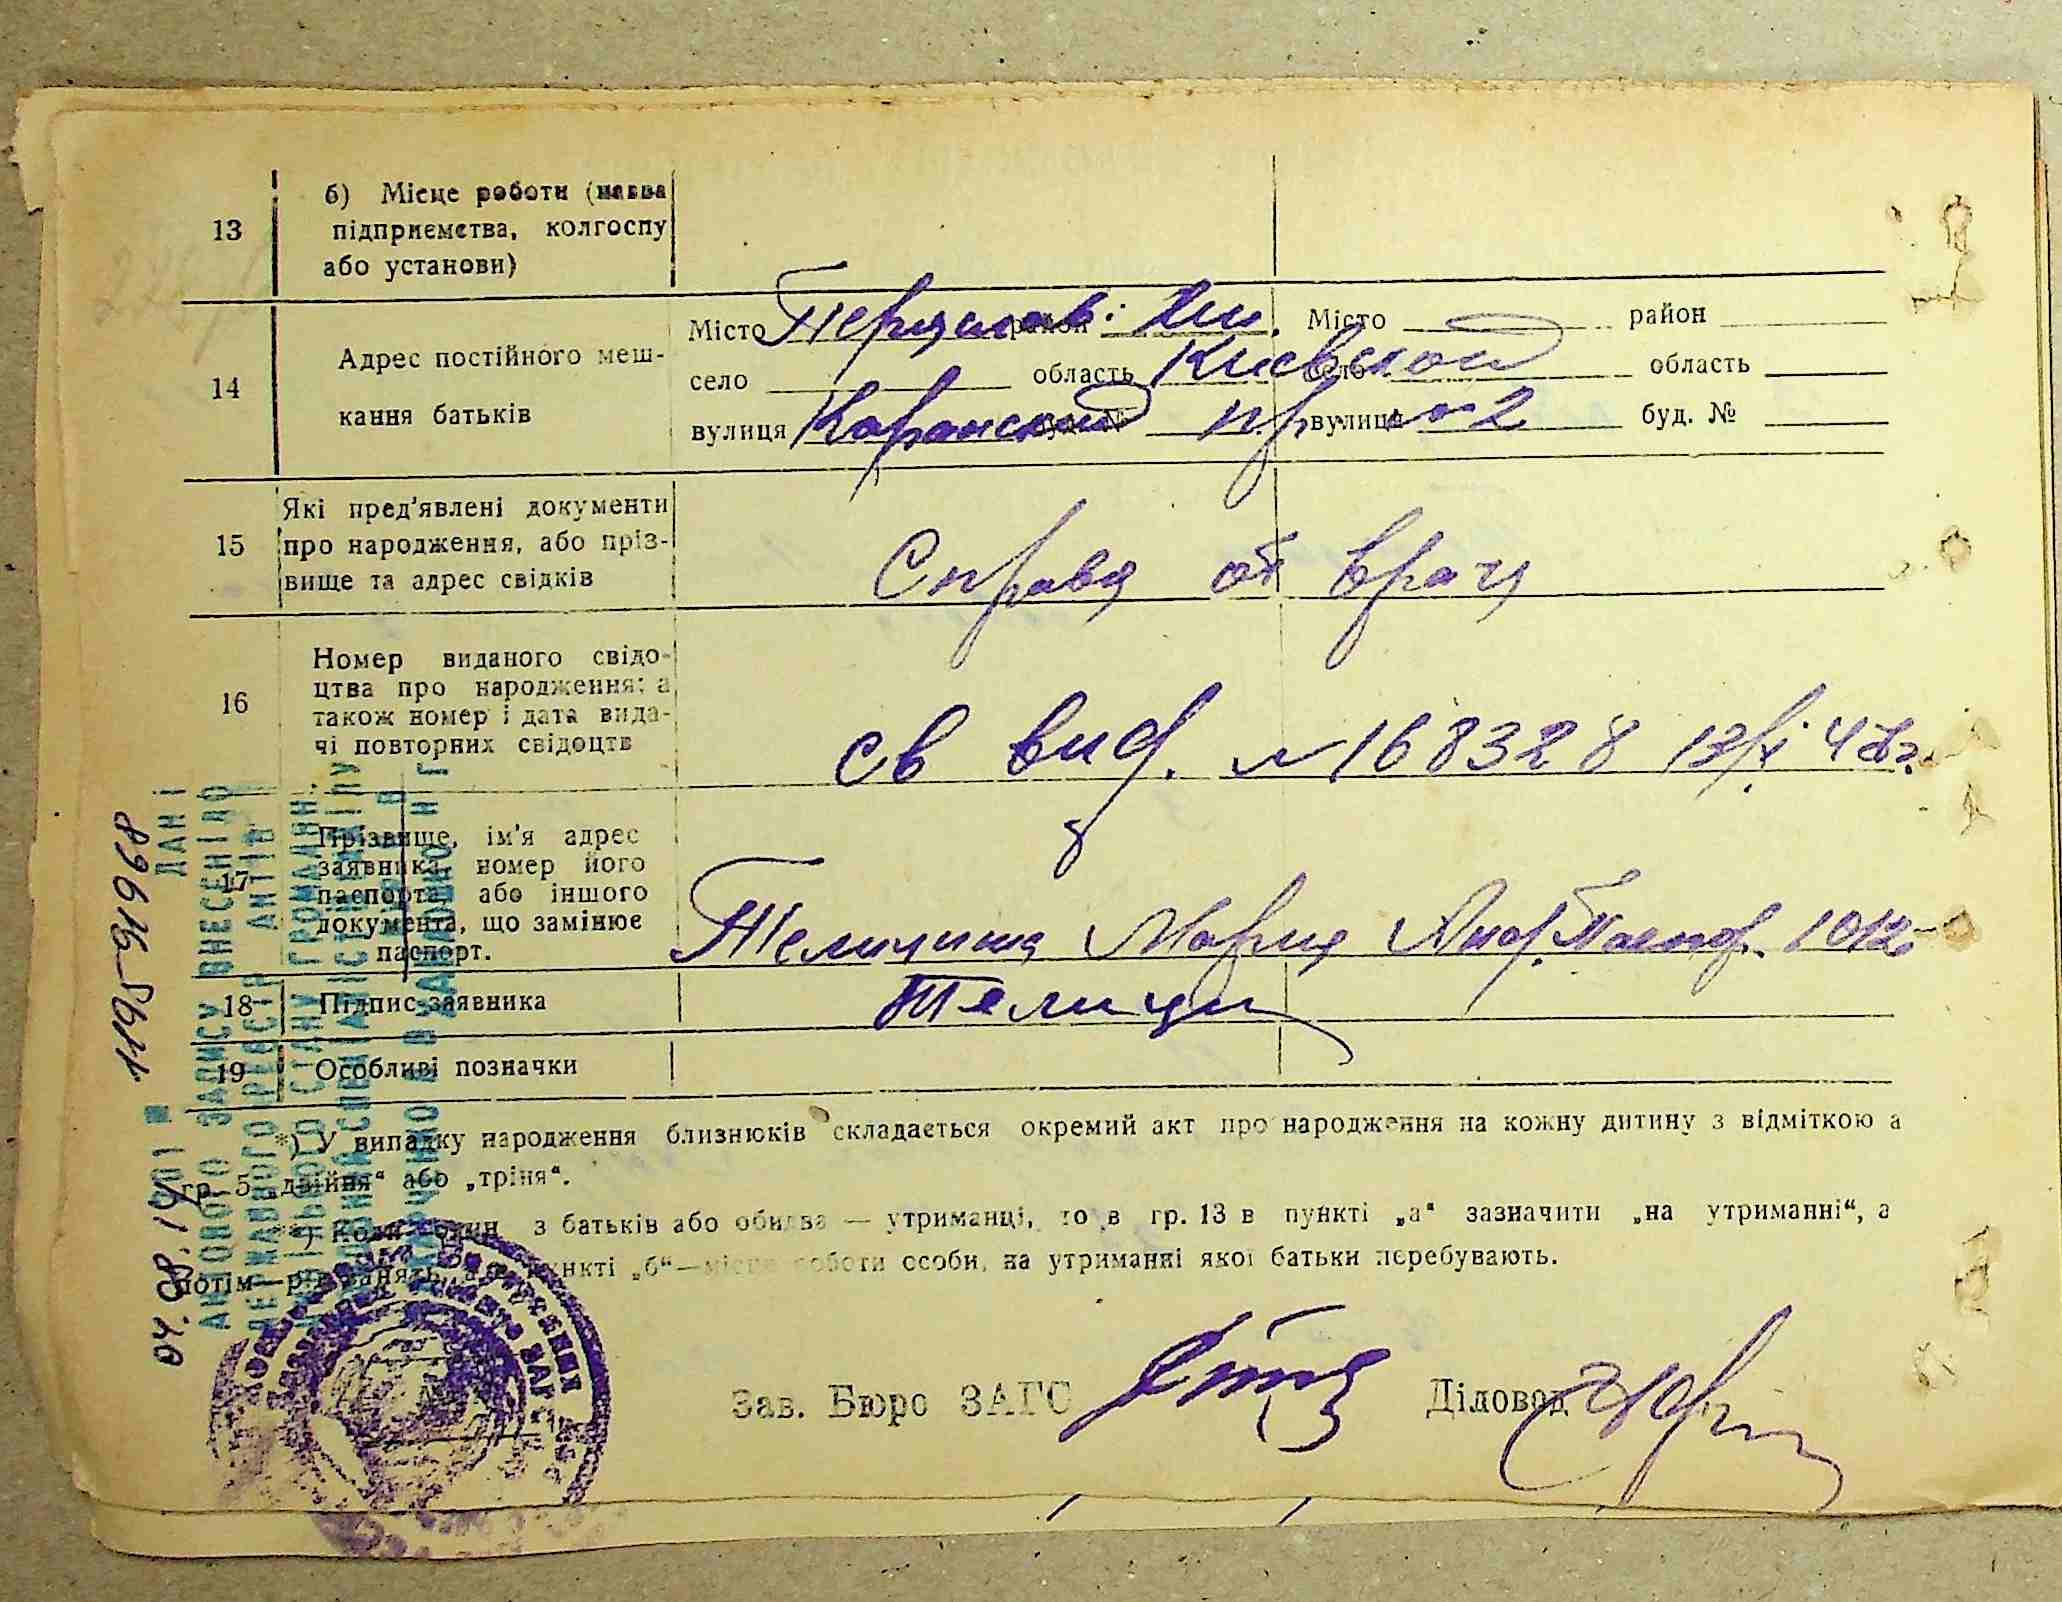 13
б) Місце роботи (назва
підприємства, колгоспу
або установи)
14
Адрес постійного меш-
кання батьків
Місто Переяслав. Хм. район
село область Киевской
вулиця Каранский буд. № пр. №2
Місто район
село область
вулиця буд. №
15
Які пред'явлені документи
про народження, або пріз-
вище та адрес свідків
Справа от врача
16
Номер виданого свідо-
цтва про народження; а
також номер і дата вида-
чі повторних свідоцтв
св выд. № 168328
17
Прізвище, ім'я адрес
заявника, номер його
паспорта, або іншого
документа, що замінює
паспорт.
Мария
18
Підпис заявника
19
Особливі позначки
*) У випадку народження близнюків складається окремий акт про народження на кожну дитину з відміткою а
гр. 5 „двійня“ або „тріня“.
**) Коли один з батьків або обидва — утриманці, то в гр. 13 в пункті „а“ зазначити „на утриманні“, а
потім рід занять, а в пункті „б“—місце роботи особи, на утриманні якої батьки перебувають.
Зав. Бюро ЗАГС
Діловод
1195-31968
ДАНІ
АКТОВОГО ЗАПИСУ ВНЕСЕНІ ДО
ДЕРЖАВНОГО РЕЄСТР АКТІВ
ЦИВІЛЬНОГО СТАНУ ГРОМАДЯН.